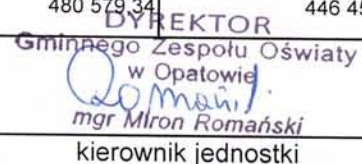 480 579,34 446 45
DYREKTOR
Gminnego Zespołu Oświaty
w Opatowie
mgr Miron Romański
kierownik jednostki